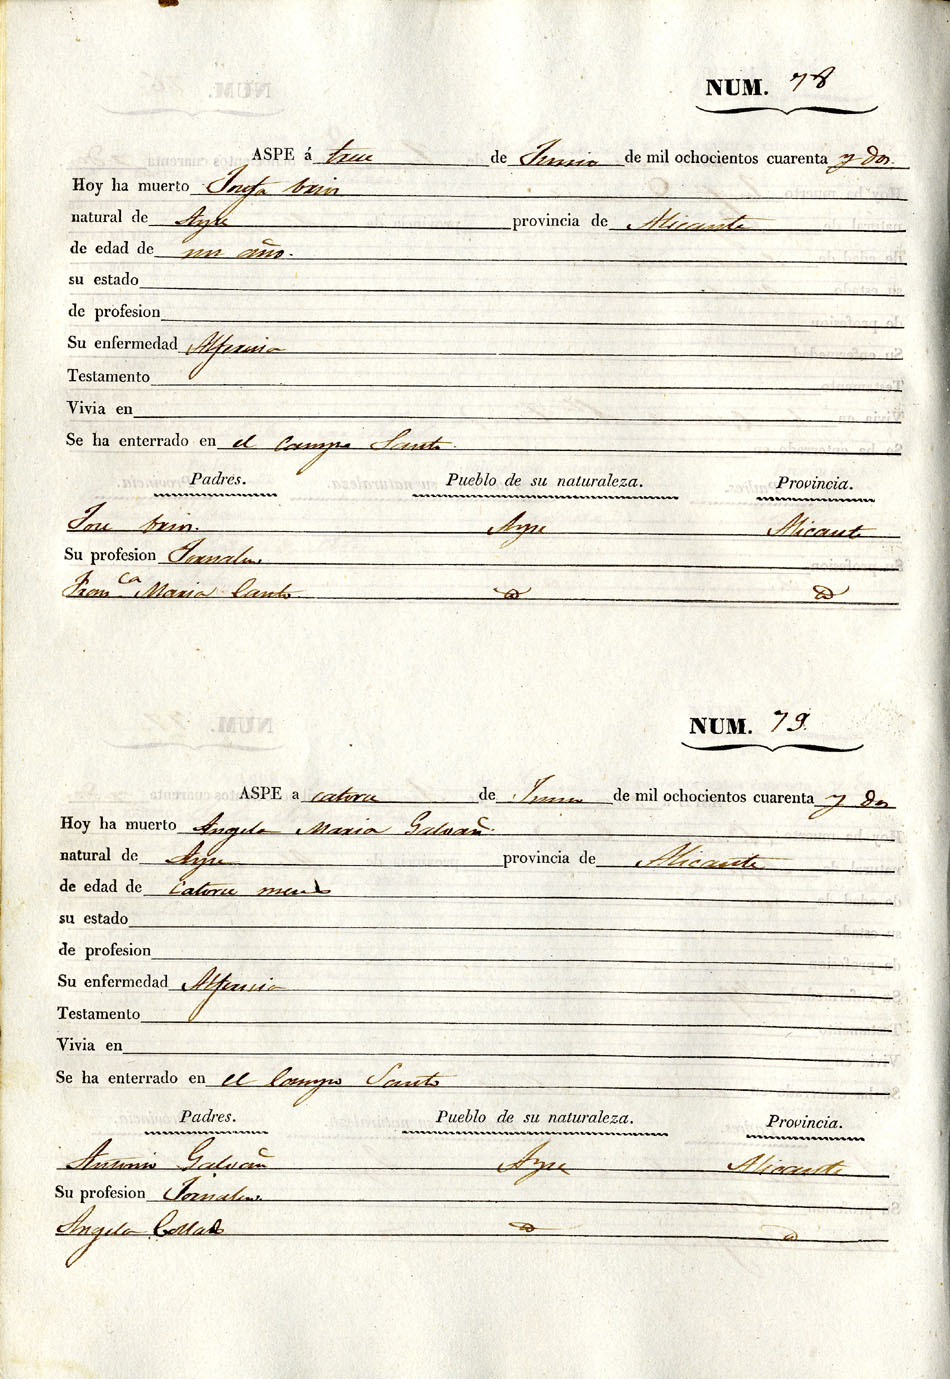 NUM. 78
ASPE á trece de Junio de mil ochocientos cuarenta y dos.
Hoy ha muerto Josefa
natural de Aspe provincia de Alicante
de edad de un año.
su estado
de profesion
Su enfermedad Alferecia
Testamento
Vivia en
Se ha enterrado en el Campo Santo.
Padres. Pueblo de su naturaleza. Provincia.
Jose Aspe Alicante
Su profesion Jornalero
Franca Maria Canto id id
NUM. 79.
ASPE a catorce de Junio de mil ochocientos cuarenta y dos
Hoy ha muerto Angela Maria Galvañ.
natural de Aspe provincia de Alicante
de edad de catorce meses
su estado
de profesion
Su enfermedad Alferecia
Testamento
Vivia en
Se ha enterrado en el Campo Santo
Padres. Pueblo de su naturaleza. Provincia.
Antonio Galvañ Aspe Alicante
Su profesion Jornalero
Angela id id